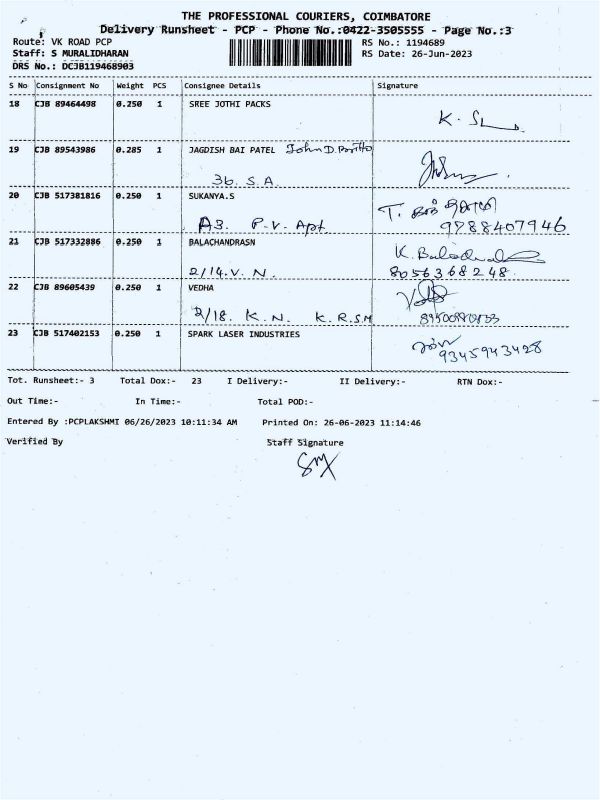 THE PROFESSIONAL COURIERS, COIMBATORE
Delivery Runsheet - PCP - Phone No.:0422-3505555 - Page No.:3
Route: VK ROAD PCP RS No.: 1194689
Staff: S MURALIDHARAN RS Date: 26-Jun-2023
DRS No.: DCJB119468903
S No Consignment No Weight PCS Consignee Details Signature
18 CJB 89464498 0.250 1 SREE JOTHI PACKS
19 CJB 89543986 0.285 1 JAGDISH BAI PATEL John D.
36. S.A.
20 CJB 517381816 0.250 1 SUKANYA.S T.
A3. P.V. Apt. 9788407946
21 CJB 517332886 0.250 1 BALACHANDRASN K.
2/14. V. N. 8056368248
22 CJB 89605439 0.250 1 VEDHA
2/18. K.N. K.R.S.M
23 CJB 517402153 0.250 1 SPARK LASER INDUSTRIES
9345943428
Tot. Runsheet:- 3 Total Dox:- 23 I Delivery:- II Delivery:- RTN Dox:-
Out Time:- In Time:- Total POD:-
Entered By :PCPLAKSHMI 06/26/2023 10:11:34 AM Printed On: 26-06-2023 11:14:46
Verified By Staff Signature